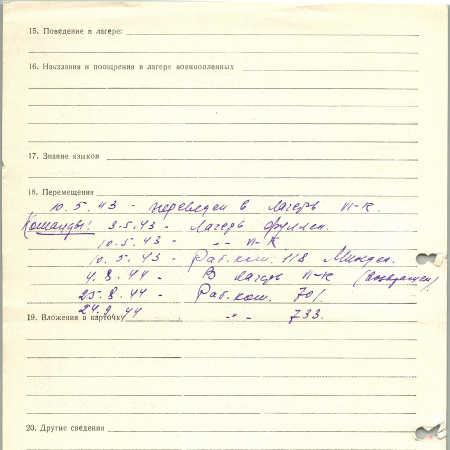 15. Поведение в лагере:
16. Наказания и поощрения в лагере военнопленных
17. Знание языков
18. Перемещения
10. 5. 43 - переведен в лагерь VI-К.
Команды: 3.5.43 - лагерь
10. 5. 43 - -"- VI-К
10. 5. 43 - Раб. ком. 118
4. 8. 44 - в лагерь VI-К (возвращен)
25. 8. 44 - Раб. ком. 701.
24.9. 44 -"- 733.
19. Вложения в карточку
20. Другие сведения